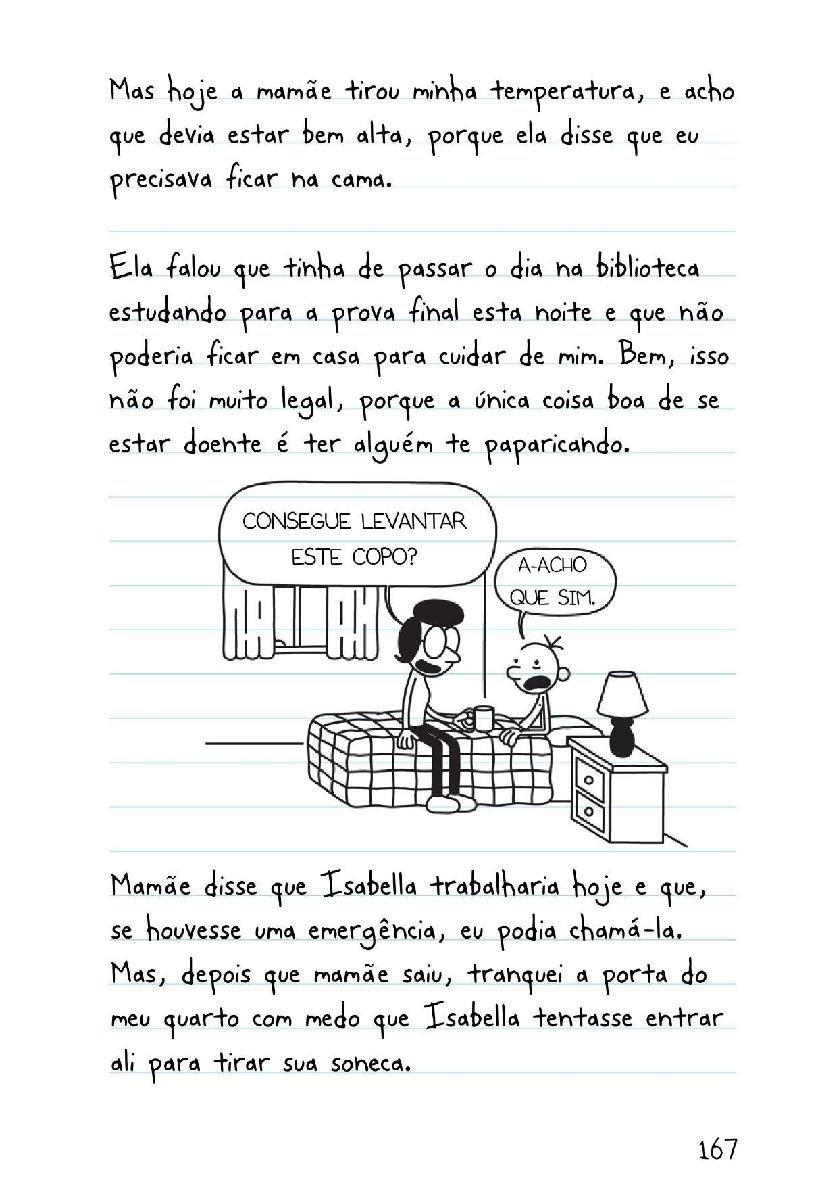 Mas hoje a mamãe tirou minha temperatura, e acho
que devia estar bem alta, porque ela disse que eu
precisava ficar na cama.
Ela falou que tinha de passar o dia na biblioteca
estudando para a prova final esta noite e que não
poderia ficar em casa para cuidar de mim. Bem, isso
não foi muito legal, porque a única coisa boa de se
estar doente é ter alguém te paparicando.
CONSEGUE LEVANTAR
ESTE COPO?
A-ACHO
QUE SIM.
Mamãe disse que Isabella trabalharia hoje e que,
se houvesse uma emergência, eu podia chamá-la.
Mas, depois que mamãe saiu, tranquei a porta do
meu quarto com medo que Isabella tentasse entrar
ali para tirar sua soneca.
167